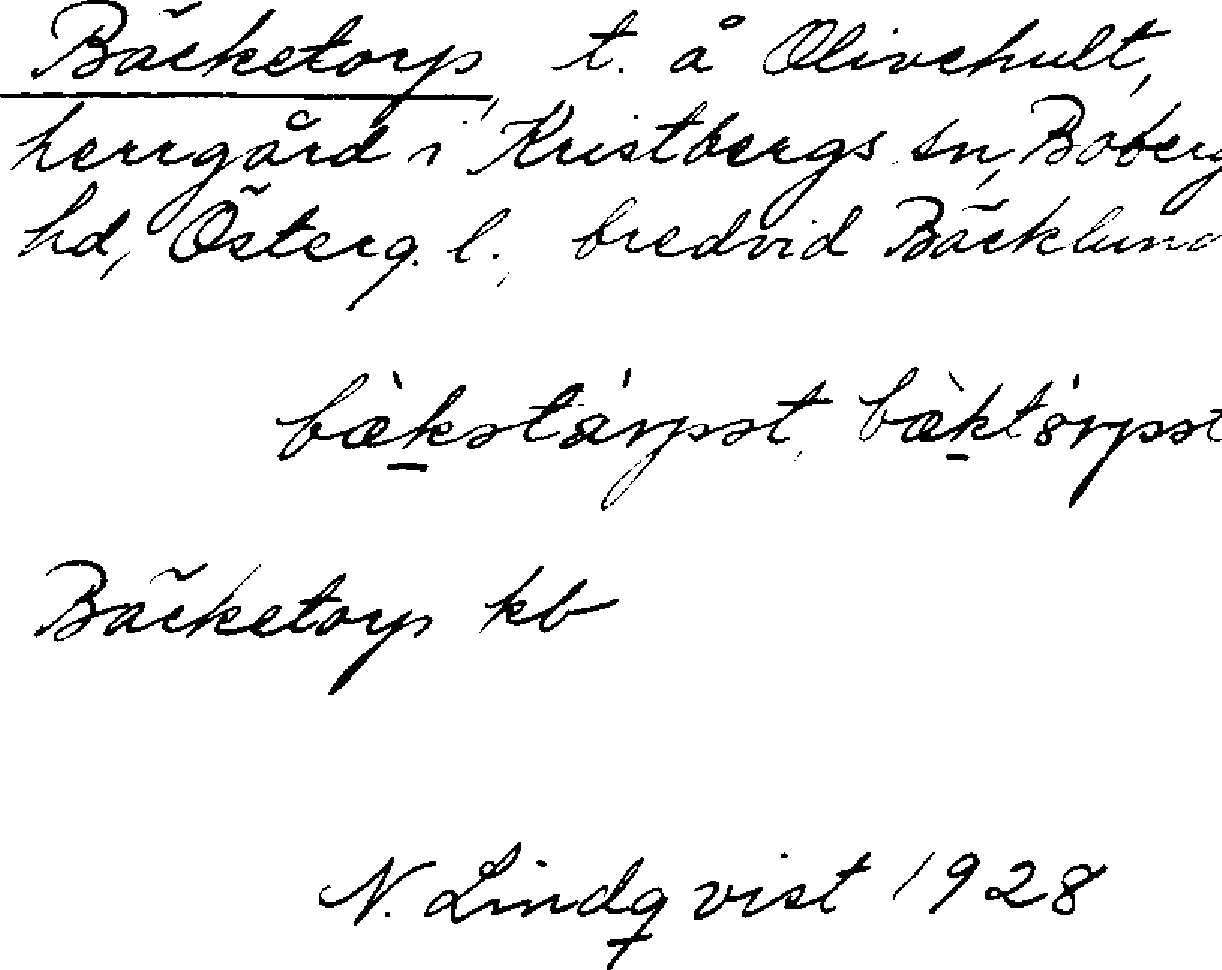 Bäcketorp, t. å Olivehult,
herrgård i Kristbergs sn, Boberg
hd, Österg. l., bredvid Bäcklund
bæ̀kstárpət, bæ̀którpət
Bäcketorp kb
N. Lindqvist 1928